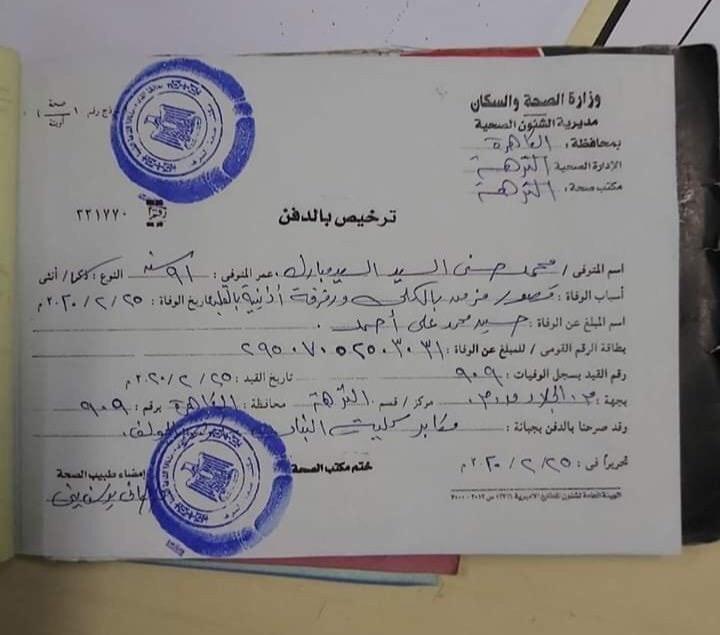 وزارة الصحة والسكان
مديرية الشئون الصحية
بمحافظة : القاهرة
الإدارة الصحية النزهة
مكتب صحة : النزهة
ترخيص بالدفن
٢٢١٧٧٠
اسم المتوفى / محمد حسنى السيد السيد مبارك . عمر المتوفى : ٩١ سنة النوع : ذكر / أنثى
أسباب الوفاة : قصور مزمن بالكلى ورفرفة أذينية بالقلب بتاريخ الوفاة : ٢٥ / ٢ / ٢٠٢٠ م
اسم المبلغ عن الوفاة : سيد محمد على أحمد .
بطاقة الرقم القومى / للمبلغ عن الوفاة :
رقم القيد بسجل الوفيات : ٩٠٩ تاريخ القيد : ٢٥ / ٢ / ٢٠٢٠ م
بجهة : م . الجلاء مركز / قسم : النزهة محافظة : القاهرة برقم : ٩٠٩
وقد صرحنا بالدفن بجبانة : مقابر كلية البنات
تحريراً فى : ٢٥ / ٢ / ٢٠٢٠ م
ختم مكتب الصحة
إمضاء طبيب الصحة
الهيئة العامة لشئون المطابع الأميرية